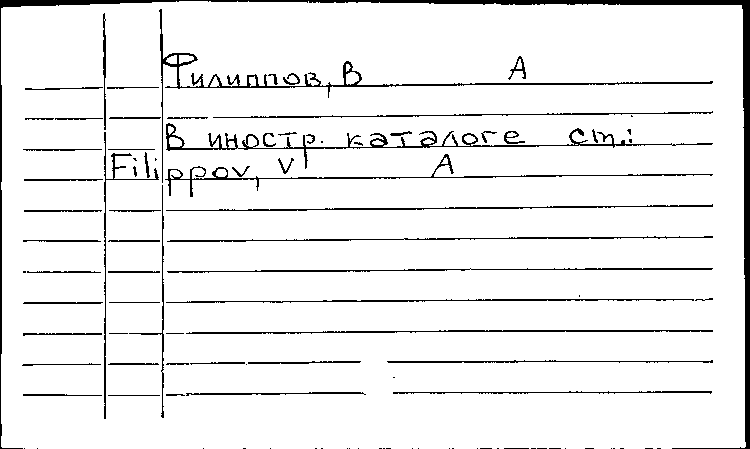 Филиппов, В А
В иностр. каталоге ст.:
Filippov, V A